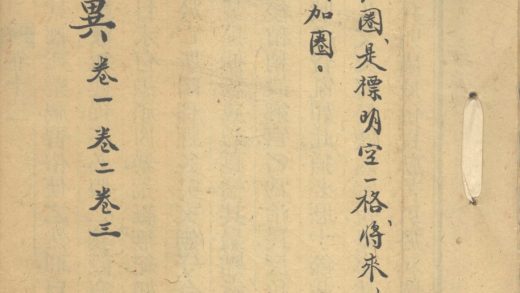 圈、是標明空一格、將來、
加圈。
異、卷一 卷二 卷三